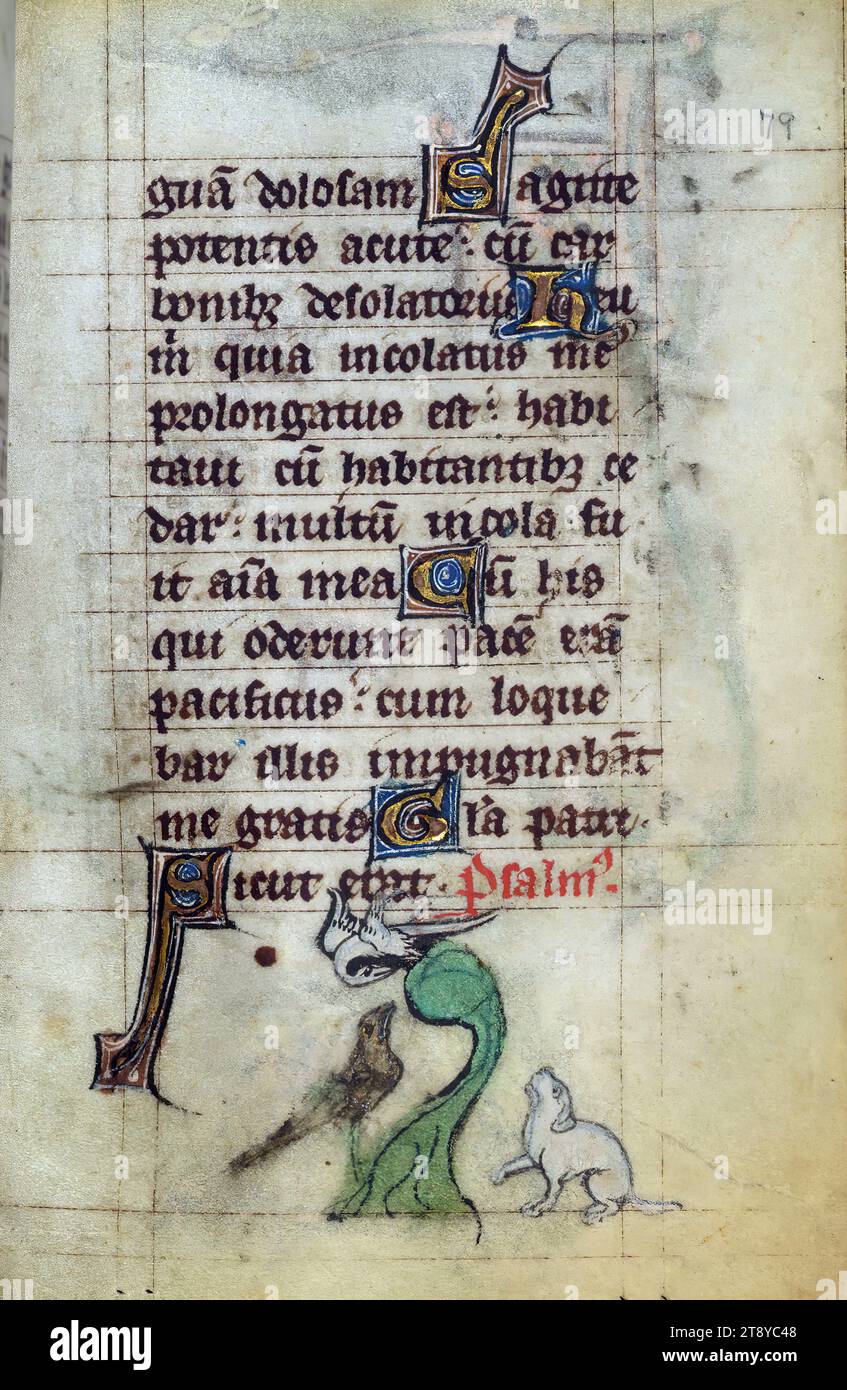 79
guā dolosam Sagitte
potentis acute : cū car
bonibꝫ desolatoriis Heu
m̄ quia incolatus meꝰ
prolongatus est : habi
taui cū habitantibꝫ ce
dar : multū incola fu
it aīa mea Cū his
qui oderunt pacē erā
pacificus : cum loque
bar illis impugnabāt
me gratis Gl'a patri .
Sicut erat . Psalmꝰ .
alamy
Image ID: 2T8YC48
www.alamy.com